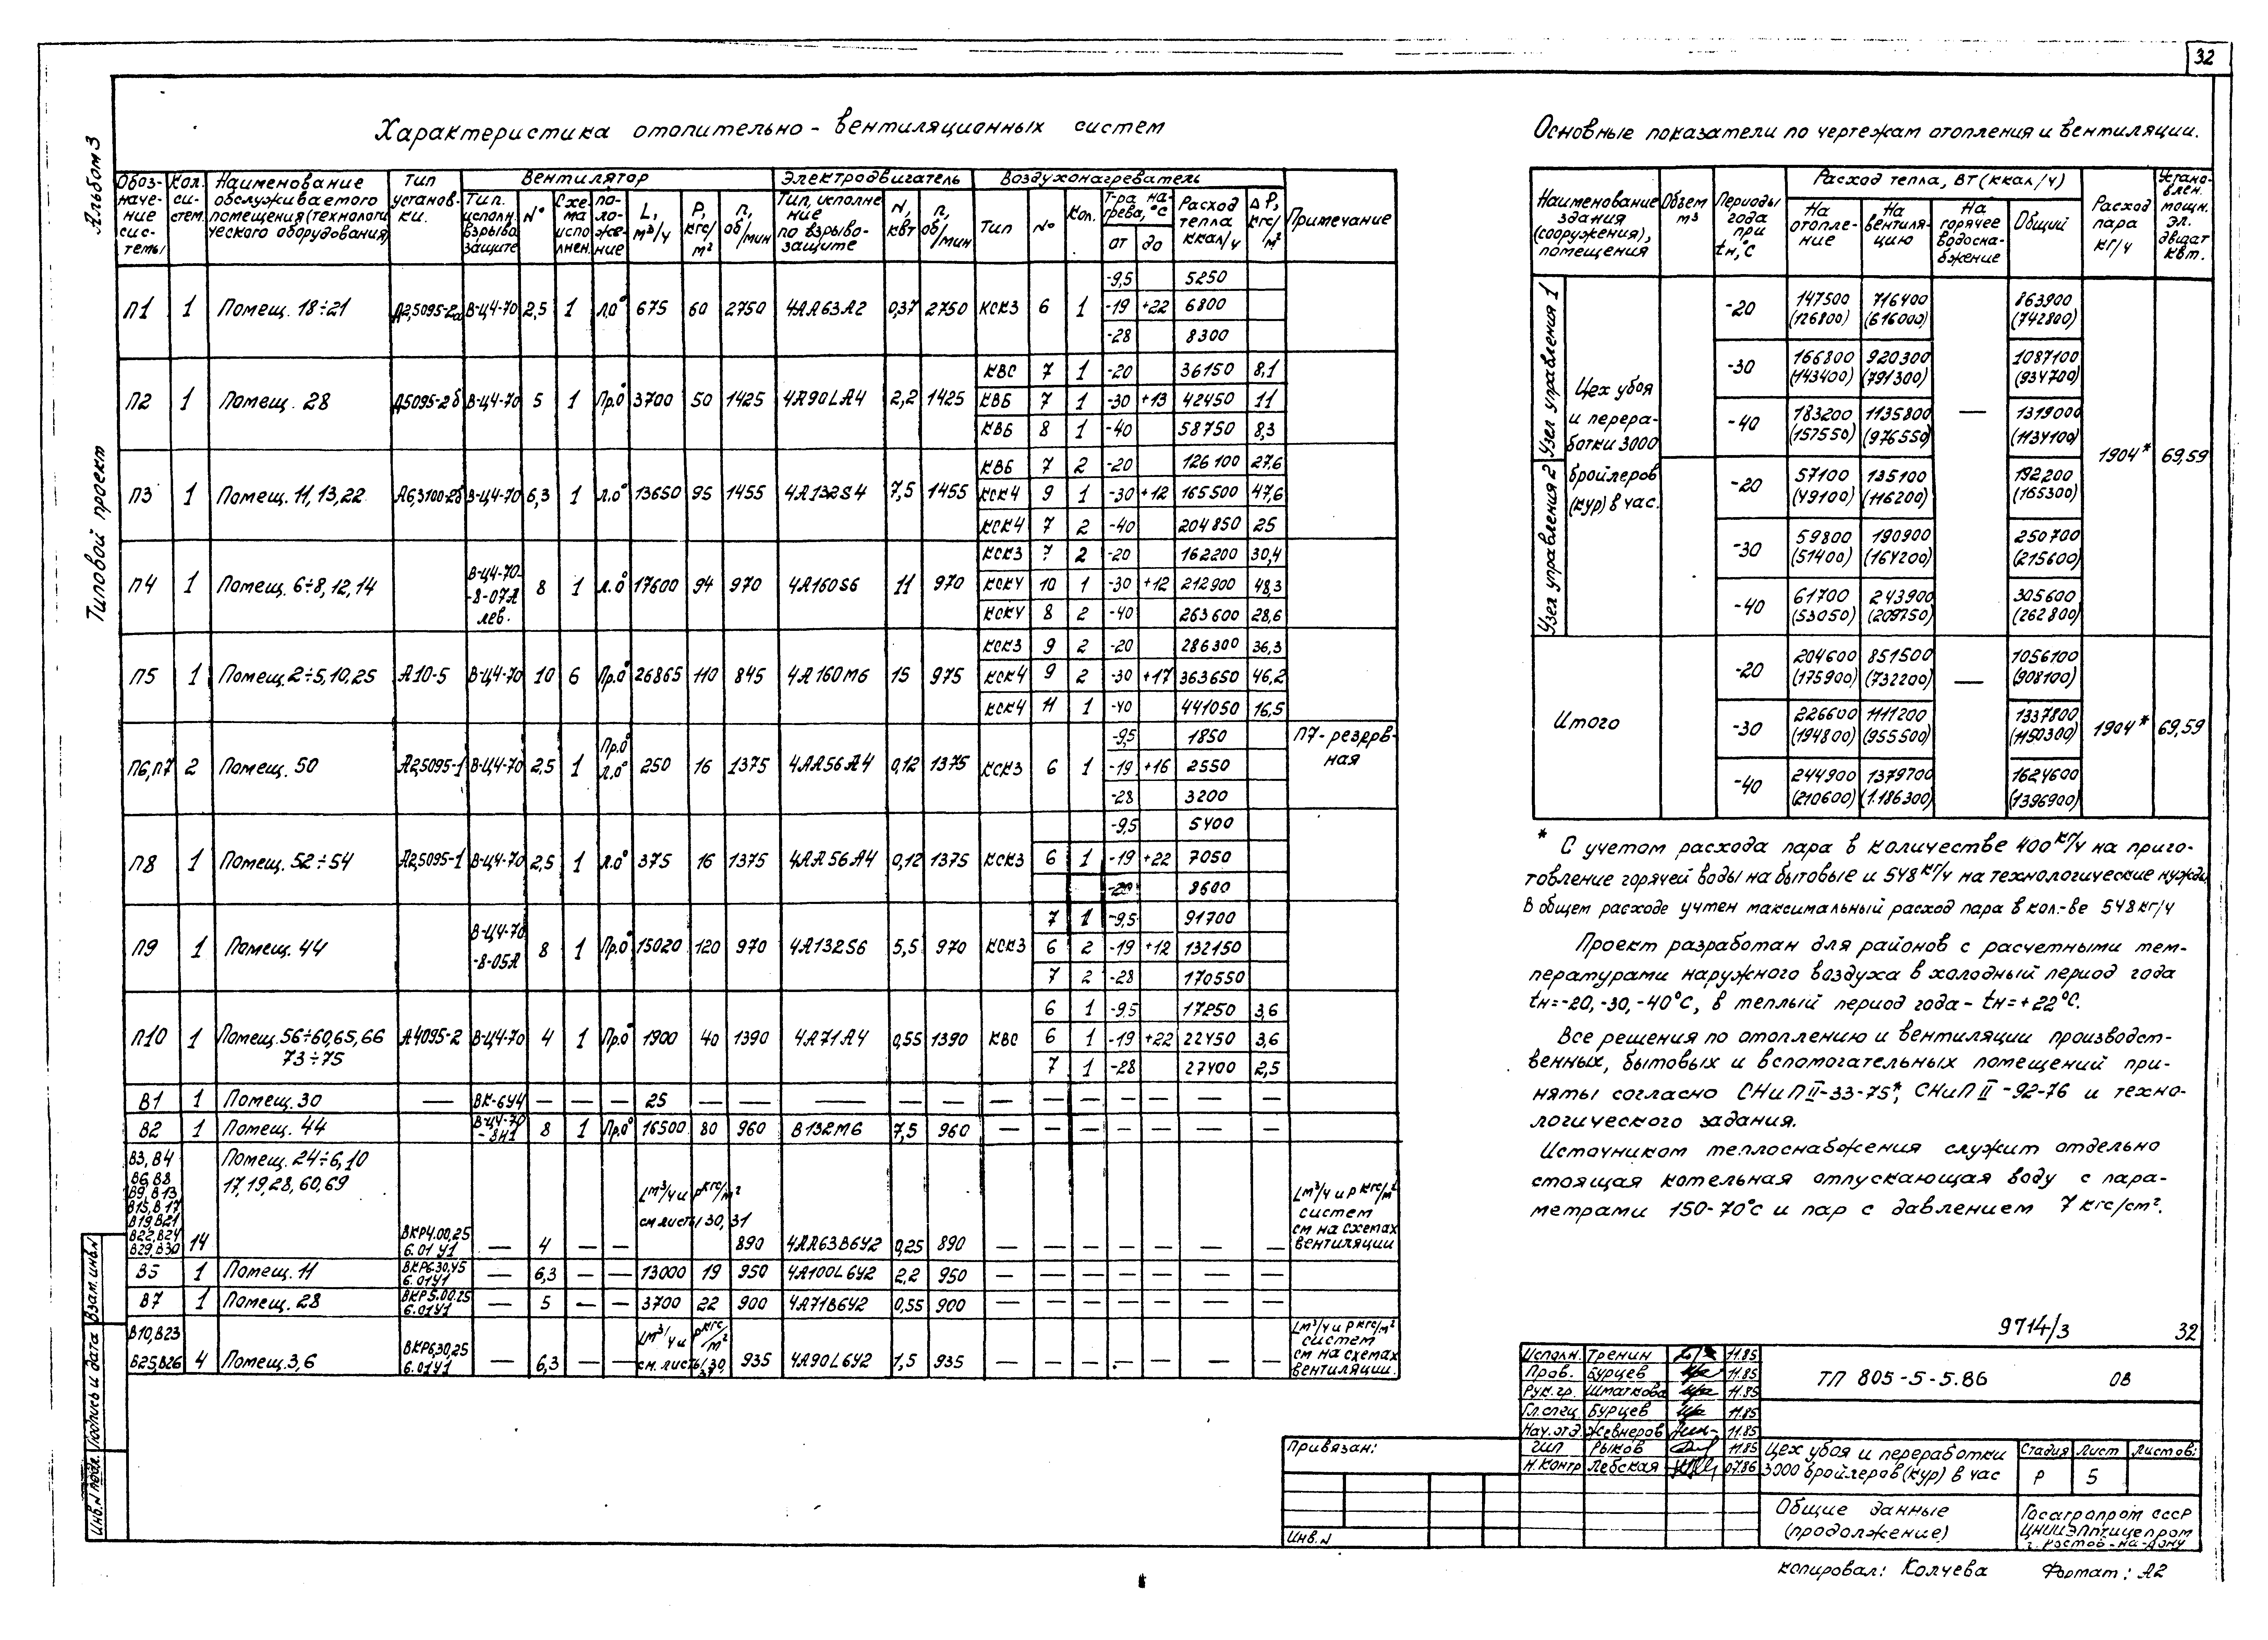 32
Альбом 3
Типовой проект
Характеристика отопительно-вентиляционных систем
Обозначение системы | Кол. систем. | Наименование обслуживаемого помещения (технологического оборудования) | Тип установки. | Вентилятор | Электродвигатель | Воздухонагреватель | Примечание
Тип. исполн. взрывозащите | N° | Схема исполнен. | положение | L, м³/ч | P, кгс/м² | n, об/мин | Тип, исполнение по взрывозащите | N, квт | n, об/мин | Тип | N° | Кол. | Т-ра нагрева, °С от до | Расход тепла ккал/ч | ΔP, кгс/м²
-9,5 5250
П1 1 Помещ. 18÷21 А2,5095-2а В-Ц4-70 2,5 1 Л.0° 675 60 2750 4АА63А2 0,37 2750 КСК3 6 1 -19 +22 6800
-28 8300
КВС 7 1 -20 36150 8,1
П2 1 Помещ. 28 А5095-2б В-Ц4-70 5 1 Пр.0° 3700 50 1425 4А90LА4 2,2 1425 КВБ 7 1 -30 +13 42450 11
КВБ 8 1 -40 58750 8,3
КВБ 7 2 -20 126100 27,6
П3 1 Помещ. 11,13,22 А6,3100-2б В-Ц4-70 6,3 1 Л.0° 13650 95 1455 4А132S4 7,5 1455 КСК4 9 1 -30 +12 165500 47,6
КСК4 7 2 -40 204850 25
КСК3 7 2 -20 162200 30,4
П4 1 Помещ. 6÷8,12,14 В-Ц4-70-8-07А лев. 8 1 Л.0° 17600 94 970 4А160S6 11 970 КСК4 10 1 -30 +12 212900 48,3
КСК4 8 2 -40 263600 28,6
КСК3 9 2 -20 286300 36,3
П5 1 Помещ. 2÷5,10,25 А10-5 В-Ц4-70 10 6 Пр.0° 26865 110 845 4А160М6 15 975 КСК4 9 2 -30 +17 363650 46,2
КСК4 11 1 -40 441050 16,5
-9,5 1850
П6,П7 2 Помещ. 50 А2,5095-1 В-Ц4-70 2,5 1 Пр.0° Л.0° 250 16 1375 4АА56А4 0,12 1375 КСК3 6 1 -19 +16 2550 П7-резервная
-28 3200
-9,5 5400
П8 1 Помещ. 52÷54 А2,5095-1 В-Ц4-70 2,5 1 Л.0° 375 16 1375 4АА56А4 0,12 1375 КСК3 6 1 -19 +22 7050
-28 8600
7 1 -9,5 91700
П9 1 Помещ. 44 В-Ц4-70-8-05А 8 1 Пр.0° 15020 120 970 4А132S6 5,5 970 КСК3 6 2 -19 +12 132150
7 2 -28 170550
6 1 -9,5 17250 3,6
П10 1 Помещ. 56÷60,65,66 73÷75 А4095-2 В-Ц4-70 4 1 Пр.0° 1900 40 1390 4А71А4 0,55 1390 КВС 6 1 -19 +22 22450 3,6
7 1 -28 27400 2,5
В1 1 Помещ. 30 — ВК-6У4 — — — 25 — — — — — — — — — — — —
В2 1 Помещ. 44 В-Ц4-70-8Н1 8 1 Пр.0° 16500 80 960 В132М6 7,5 960 — — — — — — —
В3, В4 В6, В8 В9, В13 В15, В17 В19, В21 В22, В24 В29, В30 14 Помещ. 24÷6,10 17,19,28,60,69 ВКР4.00,25 6.01 У1 — 4 — — Lм³/ч и Pкгс/м² см листы 30, 31 890 4АА63В6У2 0,25 890 — — — — — — — Lм³/ч и P кгс/м² систем см на схемах вентиляции
В5 1 Помещ. 11 ВКР6.30,45 6.01У1 — 6,3 — — 13000 19 950 4А100L6У2 2,2 950 — — — — — — —
В7 1 Помещ. 28 ВКР5.00.25 6.01У1 — 5 — — 3700 22 900 4А71В6У2 0,55 900 — — — — — — —
В10, В23 В25, В26 4 Помещ. 3,6 ВКР6,30,25 6.01У1 — 6,3 — — Lм³/ч и Pкгс/м² см. листы 30, 31 935 4А90L6У2 1,5 935 — — — — — — — Lм³/ч и P кгс/м² систем см на схемах вентиляции.
Основные показатели по чертежам отопления и вентиляции.
Наименование здания (сооружения), помещения | Объем м³ | Периоды года при tн,°С | Расход тепла, ВТ (ккал/ч) | Расход пара кг/ч | Установлен. мощн. эл. двигат квт.
На отопление | На вентиляцию | На горячее водоснабжение | Общий
Узел управления 1
Узел управления 2
Цех убоя и переработки 3000 бройлеров (кур) в час.
-20 147500 (126800) 716400 (616000) 863900 (742800)
-30 166800 (143400) 920300 (791300) 1087100 (934700)
-40 183200 (157550) 1135800 (976550) — 1319000 (1134100)
1904* 69,59
-20 57100 (49100) 135100 (116200) 192200 (165300)
-30 59800 (51400) 190900 (164200) 250700 (215600)
-40 61700 (53050) 243900 (209750) 305600 (262800)
Итого
-20 204600 (175900) 851500 (732200) — 1056100 (908100)
-30 226600 (194800) 1111200 (955500) 1337800 (1150300) 1904* 69,59
-40 244900 (210600) 1379700 (1.186300) 1624600 (1396900)
* С учетом расхода пара в количестве 400 кг/ч на приго-
товление горячей воды на бытовые и 548 кг/ч на технологические нужды
В общем расходе учтен максимальный расход пара в кол-ве 548 кг/ч
Проект разработан для районов с расчетными тем-
пературами наружного воздуха в холодный период года
tн=-20,-30,-40°С, в теплый период года - tн=+22°С.
Все решения по отоплению и вентиляции производст-
венных, бытовых и вспомогательных помещений при-
няты согласно СНиП II-33-75*, СНиП II-92-76 и техно-
логического задания.
Источником теплоснабжения служит отдельно
стоящая котельная отпускающая воду с пара-
метрами 150-70°С и пар с давлением 7 кгс/см².
9714/3 32
Исполн. Тренин 11.85
Пров. Бурцев 11.85
Рук.гр. Шматкова 11.85
Гл.спец Бурцев 11.85
Нач.отд. Жевнеров 11.85
ГИП Рыков 11.85
Н.контр Лебская 07.86
ТП 805-5-5.86 ОВ
Цех убоя и переработки
3000 бройлеров (кур) в час
Стадия Лист Листов:
Р 5
Общие данные
(продолжение)
Госагропром СССР
ЦНИИЭПптицепром
г. Ростов-на-Дону
Привязан:
Инв.N
Взам. инв.N
Подпись и дата
Инв.N подл.
копировал: Колчева Формат: А2